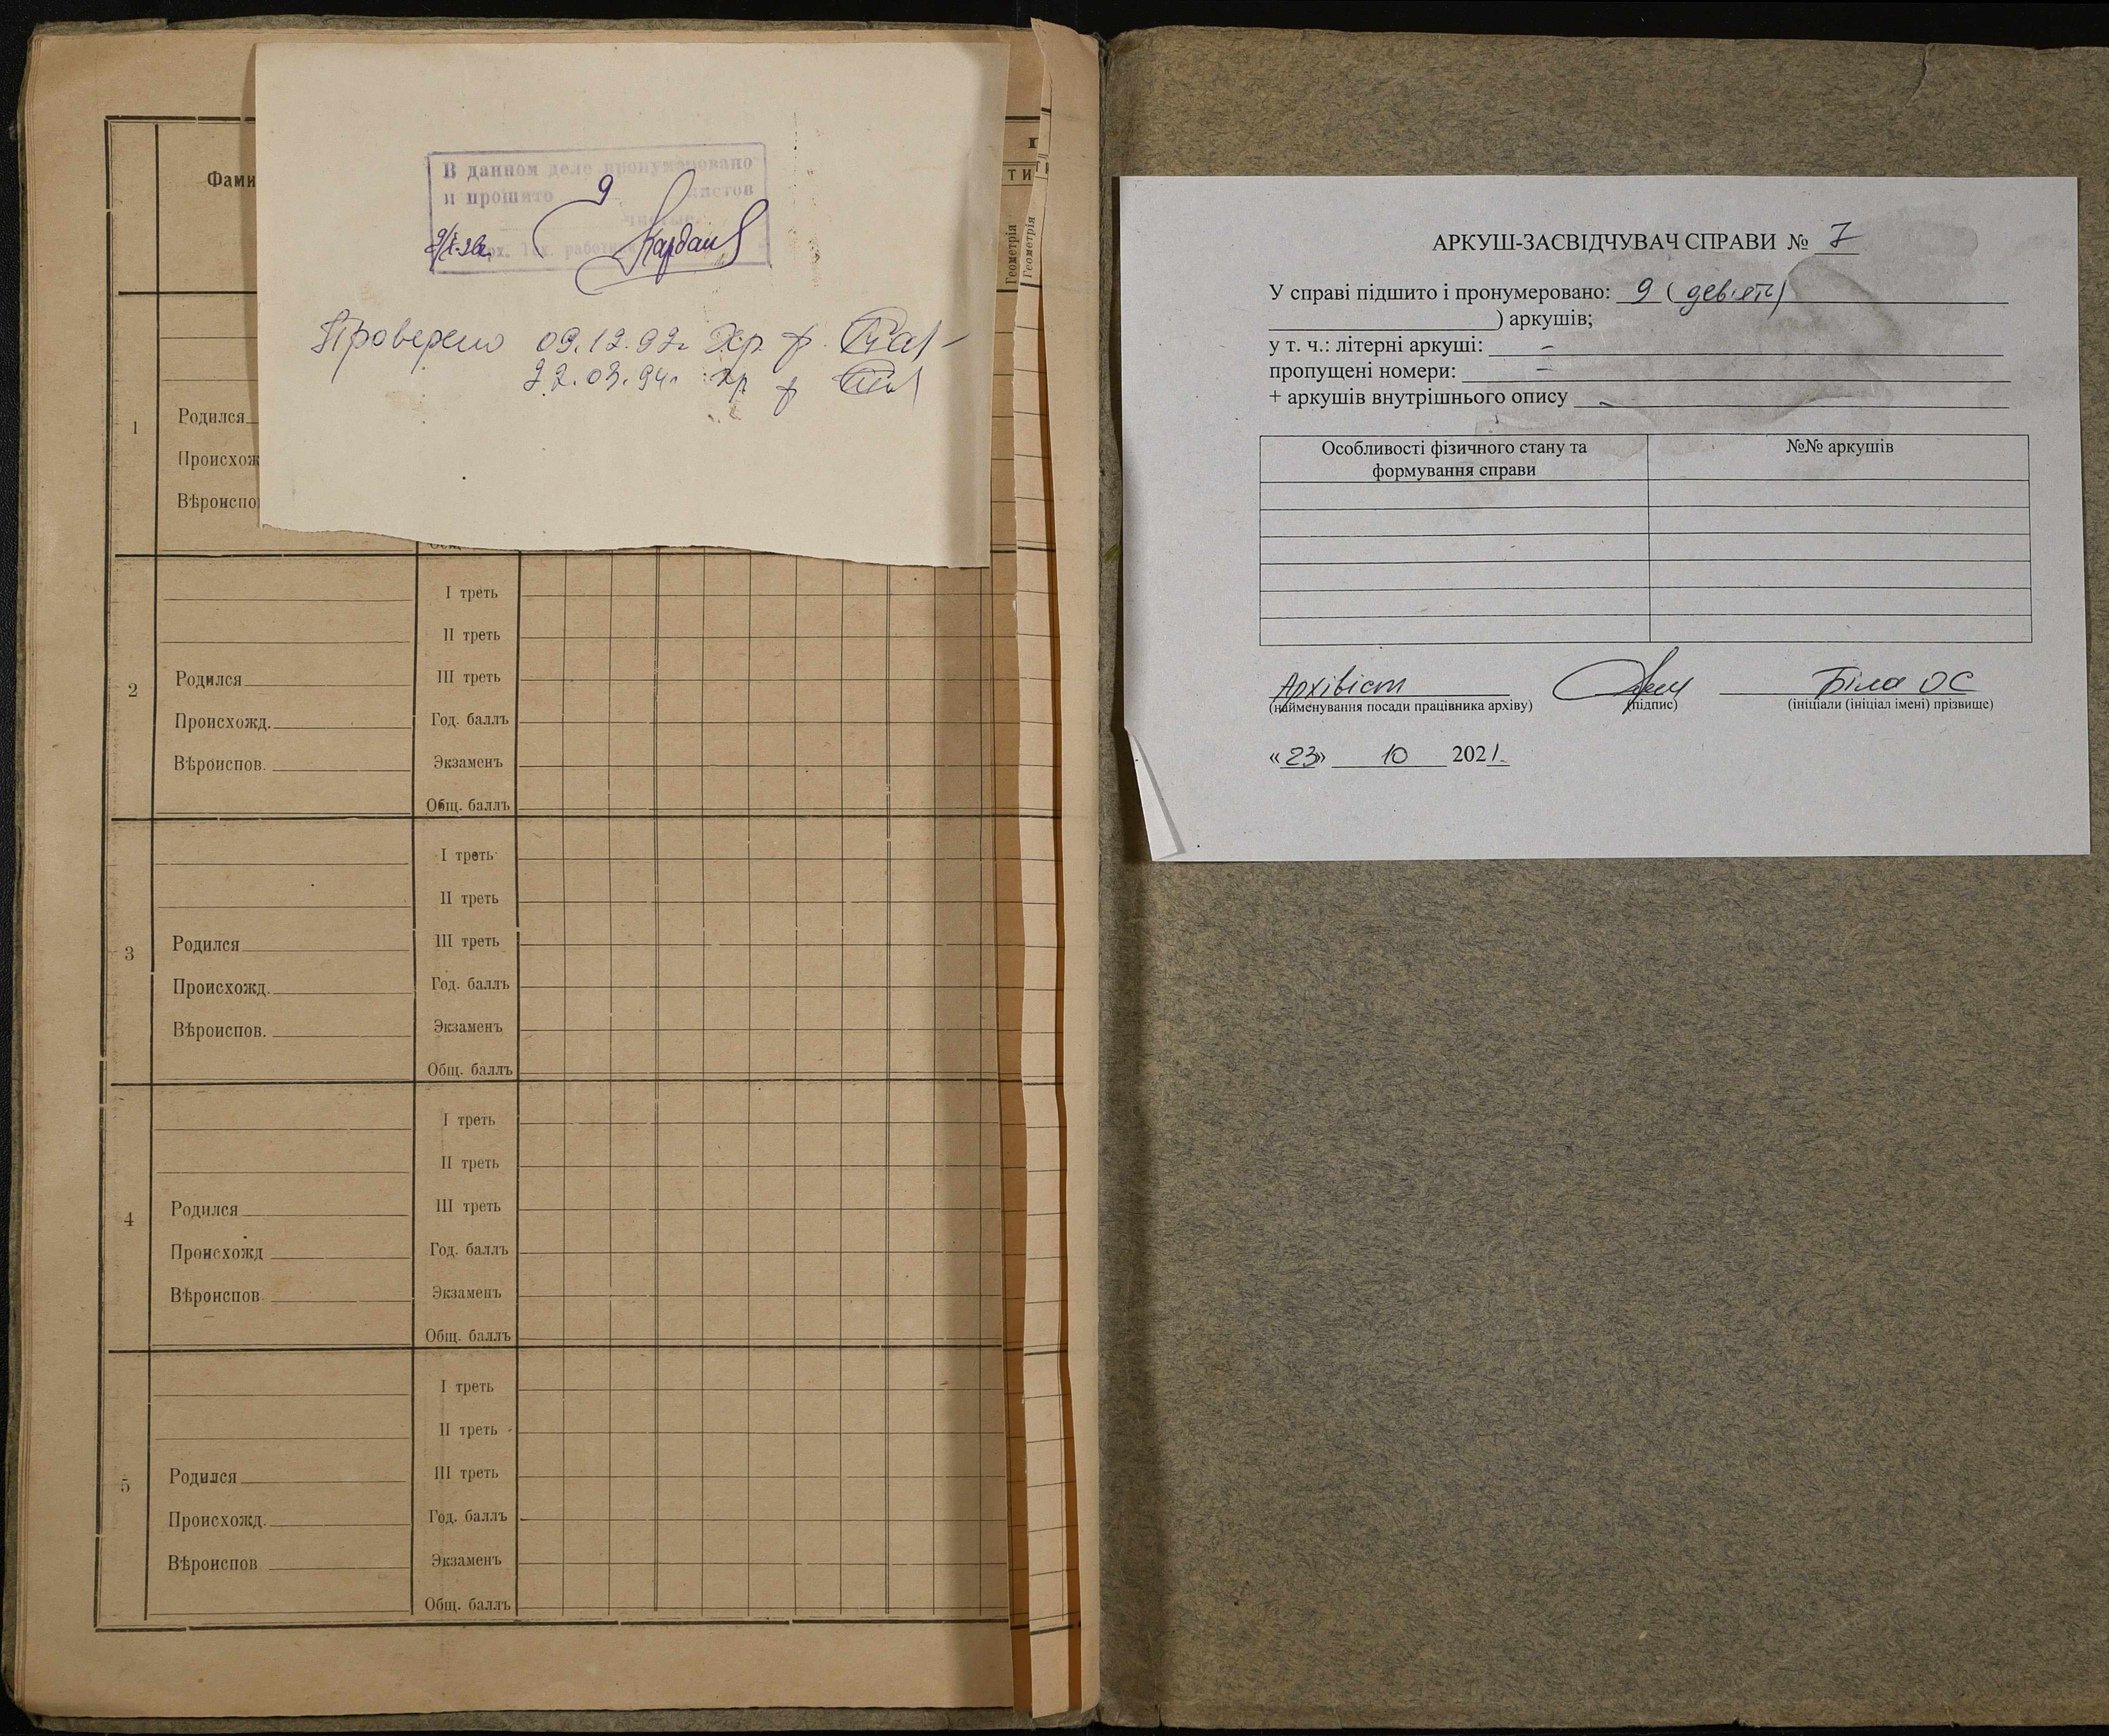 Фами
В данном деле пронумеровано
и прошито 9 листов
Геометрія
Геометрія
Проверено 09.12.92г. Хр. ф.
22.03.94г. хр ф
1
Родился
Происхож
Вѣроиспо
2
Родился
Происхожд.
Вѣроиспов.
I треть
II треть
III треть
Год. баллъ
Экзаменъ
Общ. баллъ
3
Родился
Происхожд.
Вѣроиспов.
I треть
II треть
III треть
Год. баллъ
Экзаменъ
Общ. баллъ
4
Родился
Происхожд
Вѣроиспов
I треть
II треть
III треть
Год. баллъ
Экзаменъ
Общ. баллъ
5
Родился
Происхожд.
Вѣроиспов
I треть
II треть
III треть
Год. баллъ
Экзаменъ
Общ. баллъ
АРКУШ-ЗАСВІДЧУВАЧ СПРАВИ № 7
У справі підшито і пронумеровано: 9 (девять)
) аркушів;
у т. ч.: літерні аркуші: –
пропущені номери: –
+ аркушів внутрішнього опису –
Особливості фізичного стану та
формування справи
№№ аркушів
Архівіст Біла ОС
(найменування посади працівника архіву) (підпис) (ініціали (ініціал імені) прізвище)
«23» 10 2021.